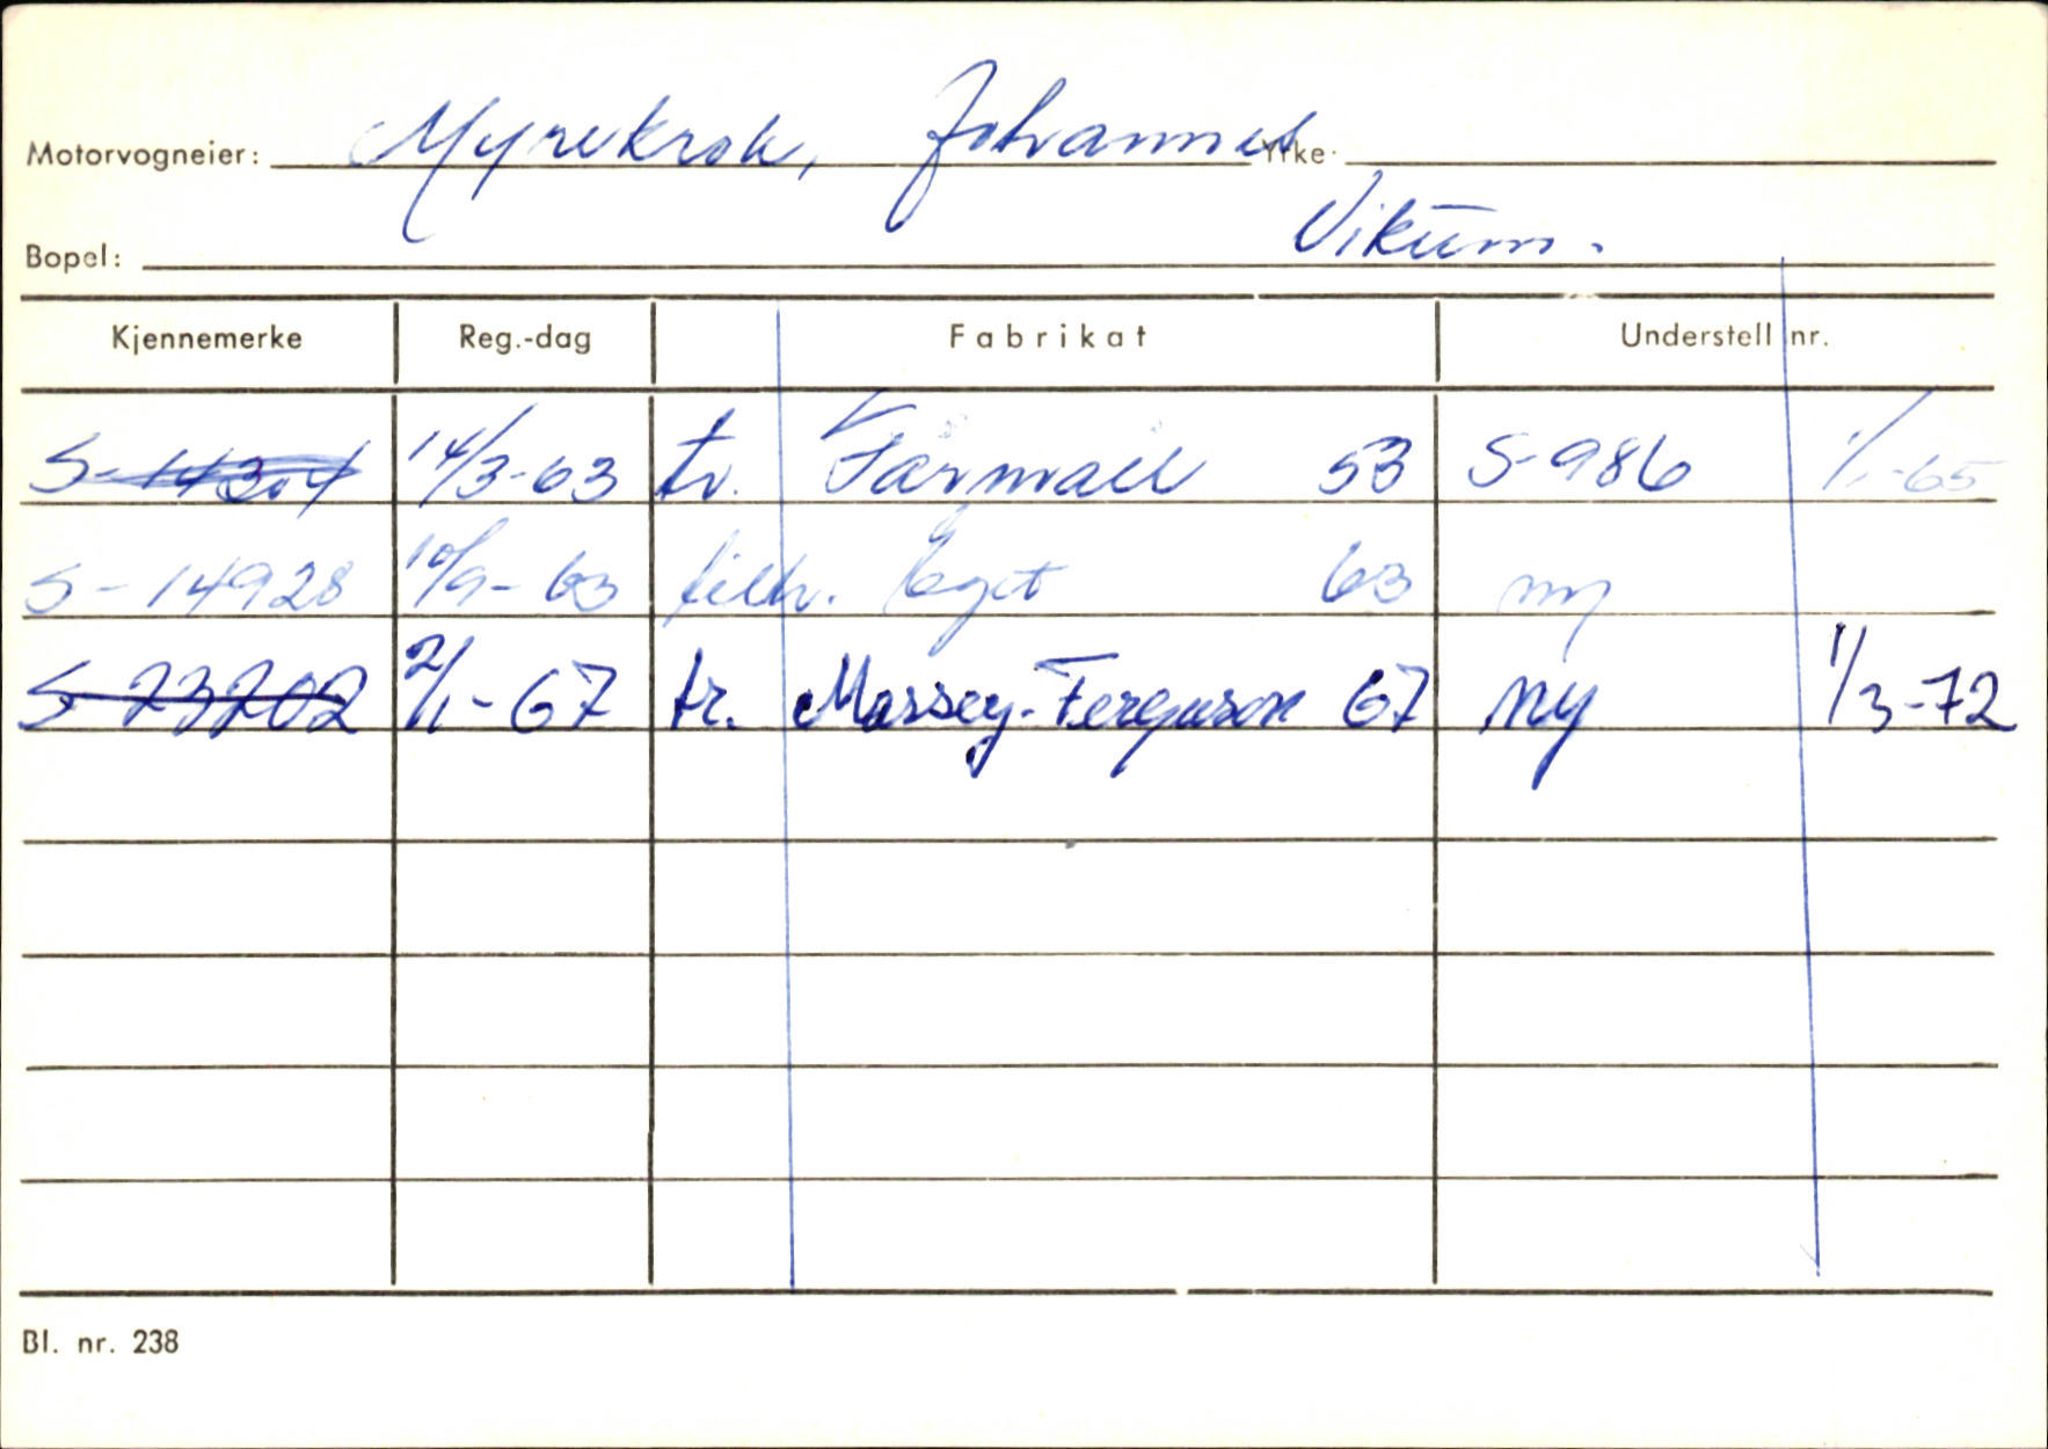 Motorvogneier: Myrekrok, Johannes Yrke
Bopel: Vikum.
Kjennemerke Reg.-dag Fabrikat Understell nr.
S-14304 14/3-63 tr. Farmall 53 S-986 1/1-65
S-14928 10/9-63 tilh. Eget 63 ny
S-23202 2/1-67 tr. Massey-Ferguson 67 ny 1/3-72
Bl. nr. 238